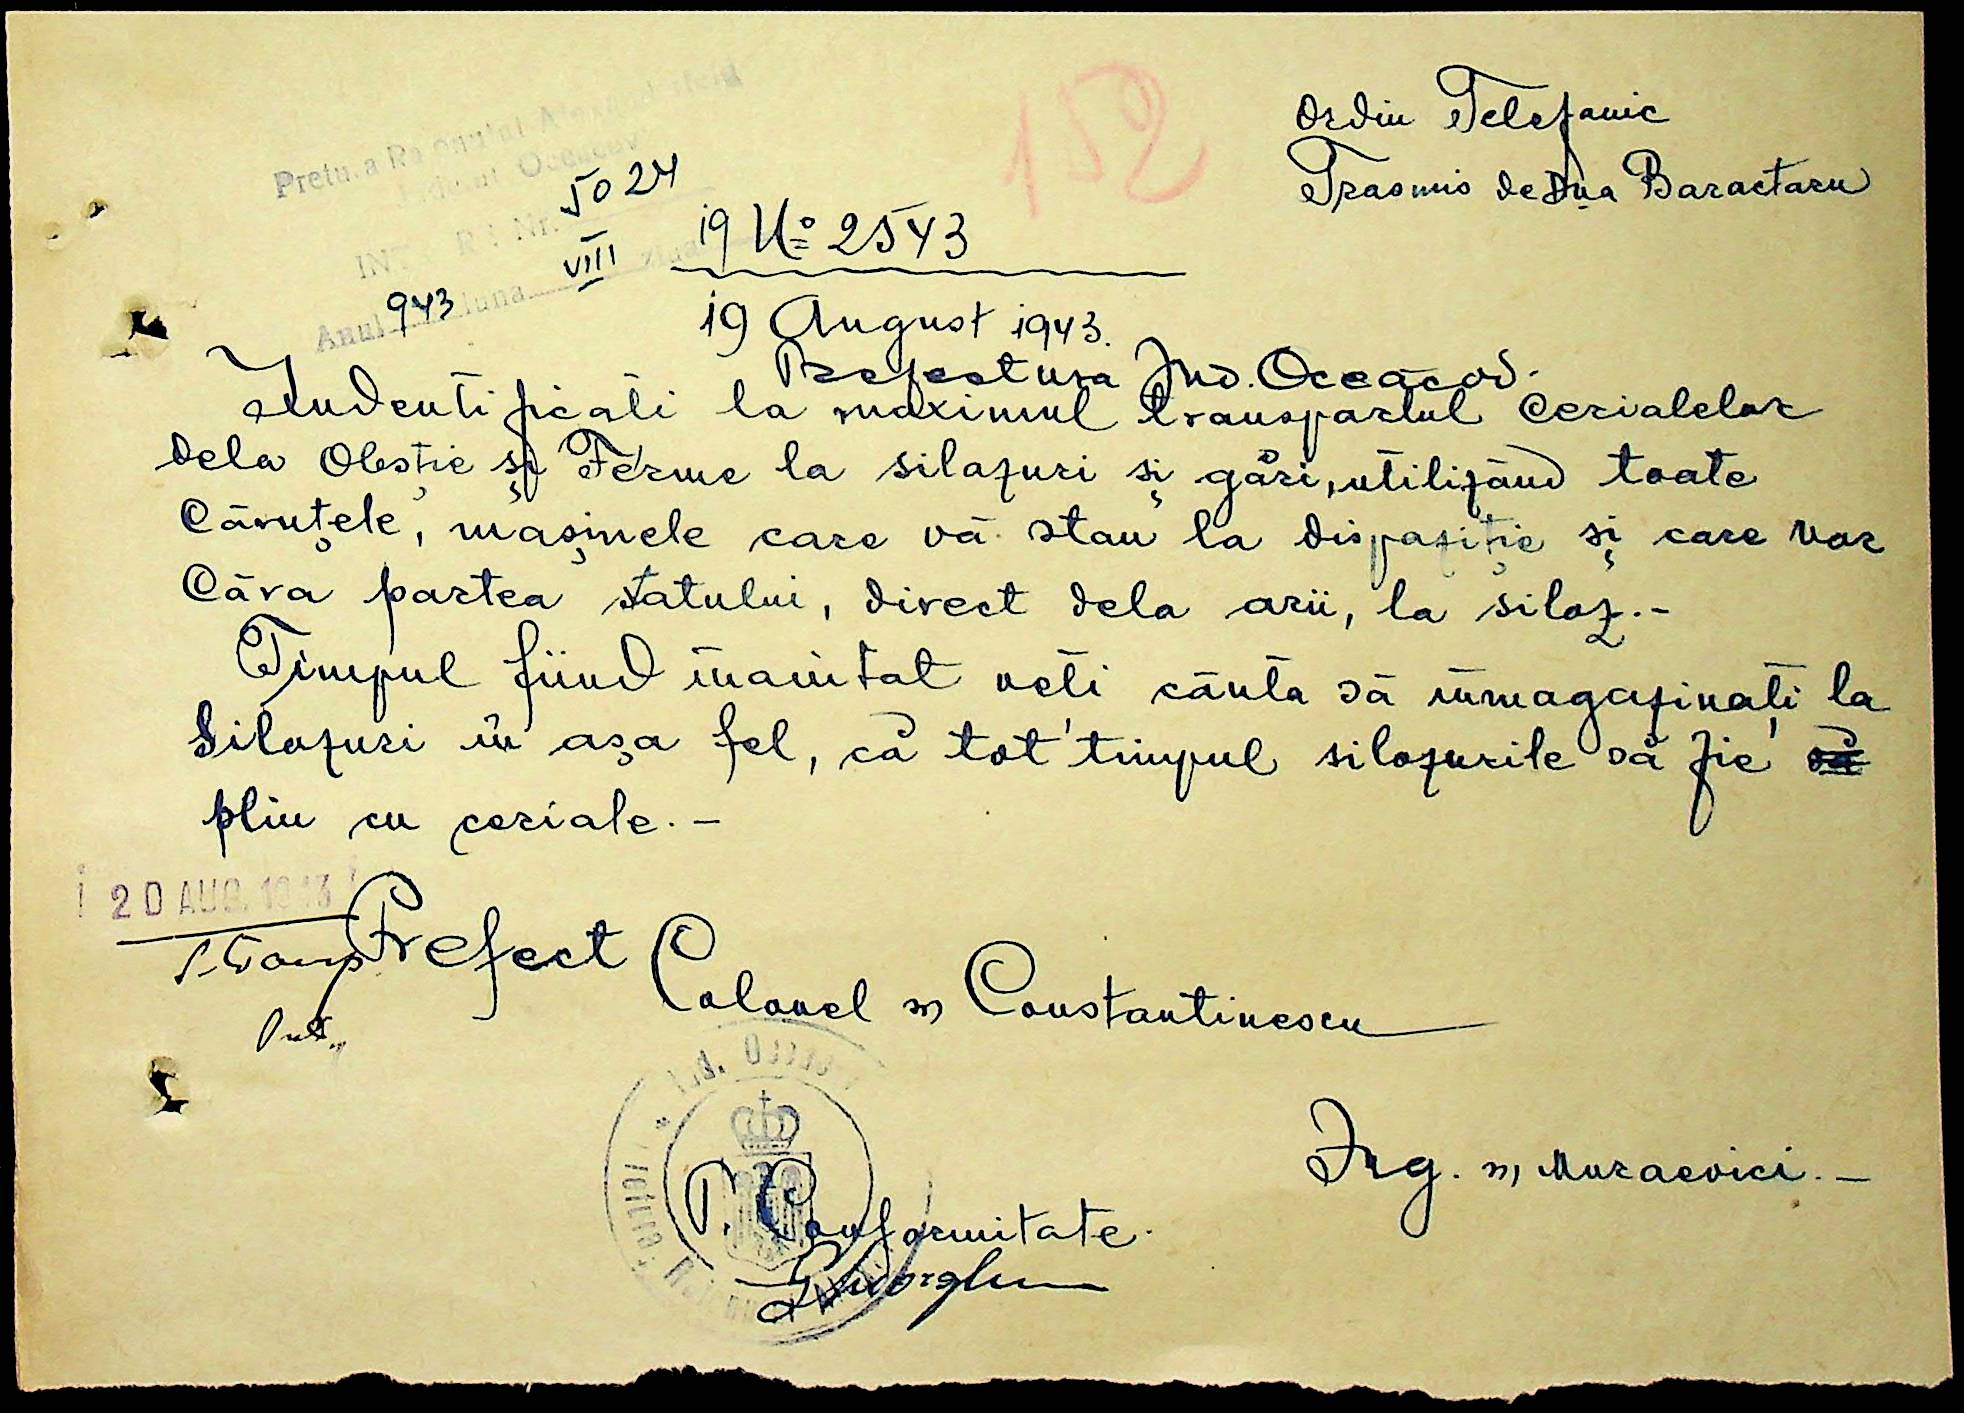 Ordin Telefonic
Trasmis de Dna Baractaru
152
Pretura Raionului Alexandrfeld
Județul Oceacov
INTRARE Nr. 5024
Anul 943 luna VIII ziua 19
No 2543
19 August 1943.
Prefectura Jud. Oceacov.
Indentificati la maximul transportul cerialelor
dela Obștie și Ferme la silozuri și gări, utilizănd toate
Căruțele, mașinele care vă stau la dispoziție și care vor
Căra partea statului, direct dela arii, la siloz.-
Timpul fiind inaintat veti cănta să inmagazinați la
Silozuri în așa fel, că tot timpul silozurile să fie
plin cu ceriale.-
20 AUG. 1943
Prefect Colonel ss Constantinescu
Ing. ss Muraevici.-
P. Conformitate.